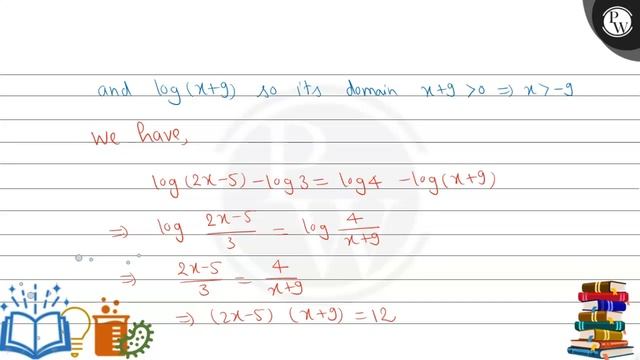 PW
and log(x+9) so its domain x+9>0 ⇒ x>-9
We have,
log(2x-5)-log3 = log4 -log(x+9)
⇒ log (2x-5)/3 = log 4/(x+9)
⇒ (2x-5)/3 = 4/(x+9)
⇒ (2x-5) (x+9) = 12